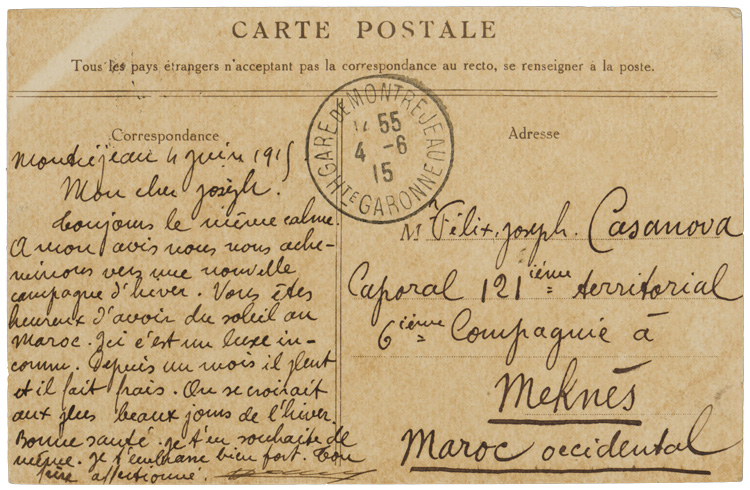 CARTE POSTALE
Tous les pays étrangers n'acceptant pas la correspondance au recto, se renseigner à la poste.
Correspondance
Montréjeau 4 juin 1915
Mon cher Joseph.
Toujours le même calme.
A mon avis nous nous ache-
minons vers une nouvelle
campagne d'hiver. Vous êtes
heureux d'avoir du soleil au
Maroc. Ici c'est un luxe in-
connu. Depuis un mois il pleut
et il fait frais. On se croirait
aux plus beaux jours de l'hiver.
Bonne santé. Je t'en souhaite de
même. Je t'embrasse bien fort. Ton
frère affectionné.
GARE DE MONTREJEAU
55
4 -6
15
HTE GARONNE
Adresse
Mr Félix, Joseph. Casanova
Caporal 121ième territorial
6ième Compagnie à
Meknès
Maroc occidental